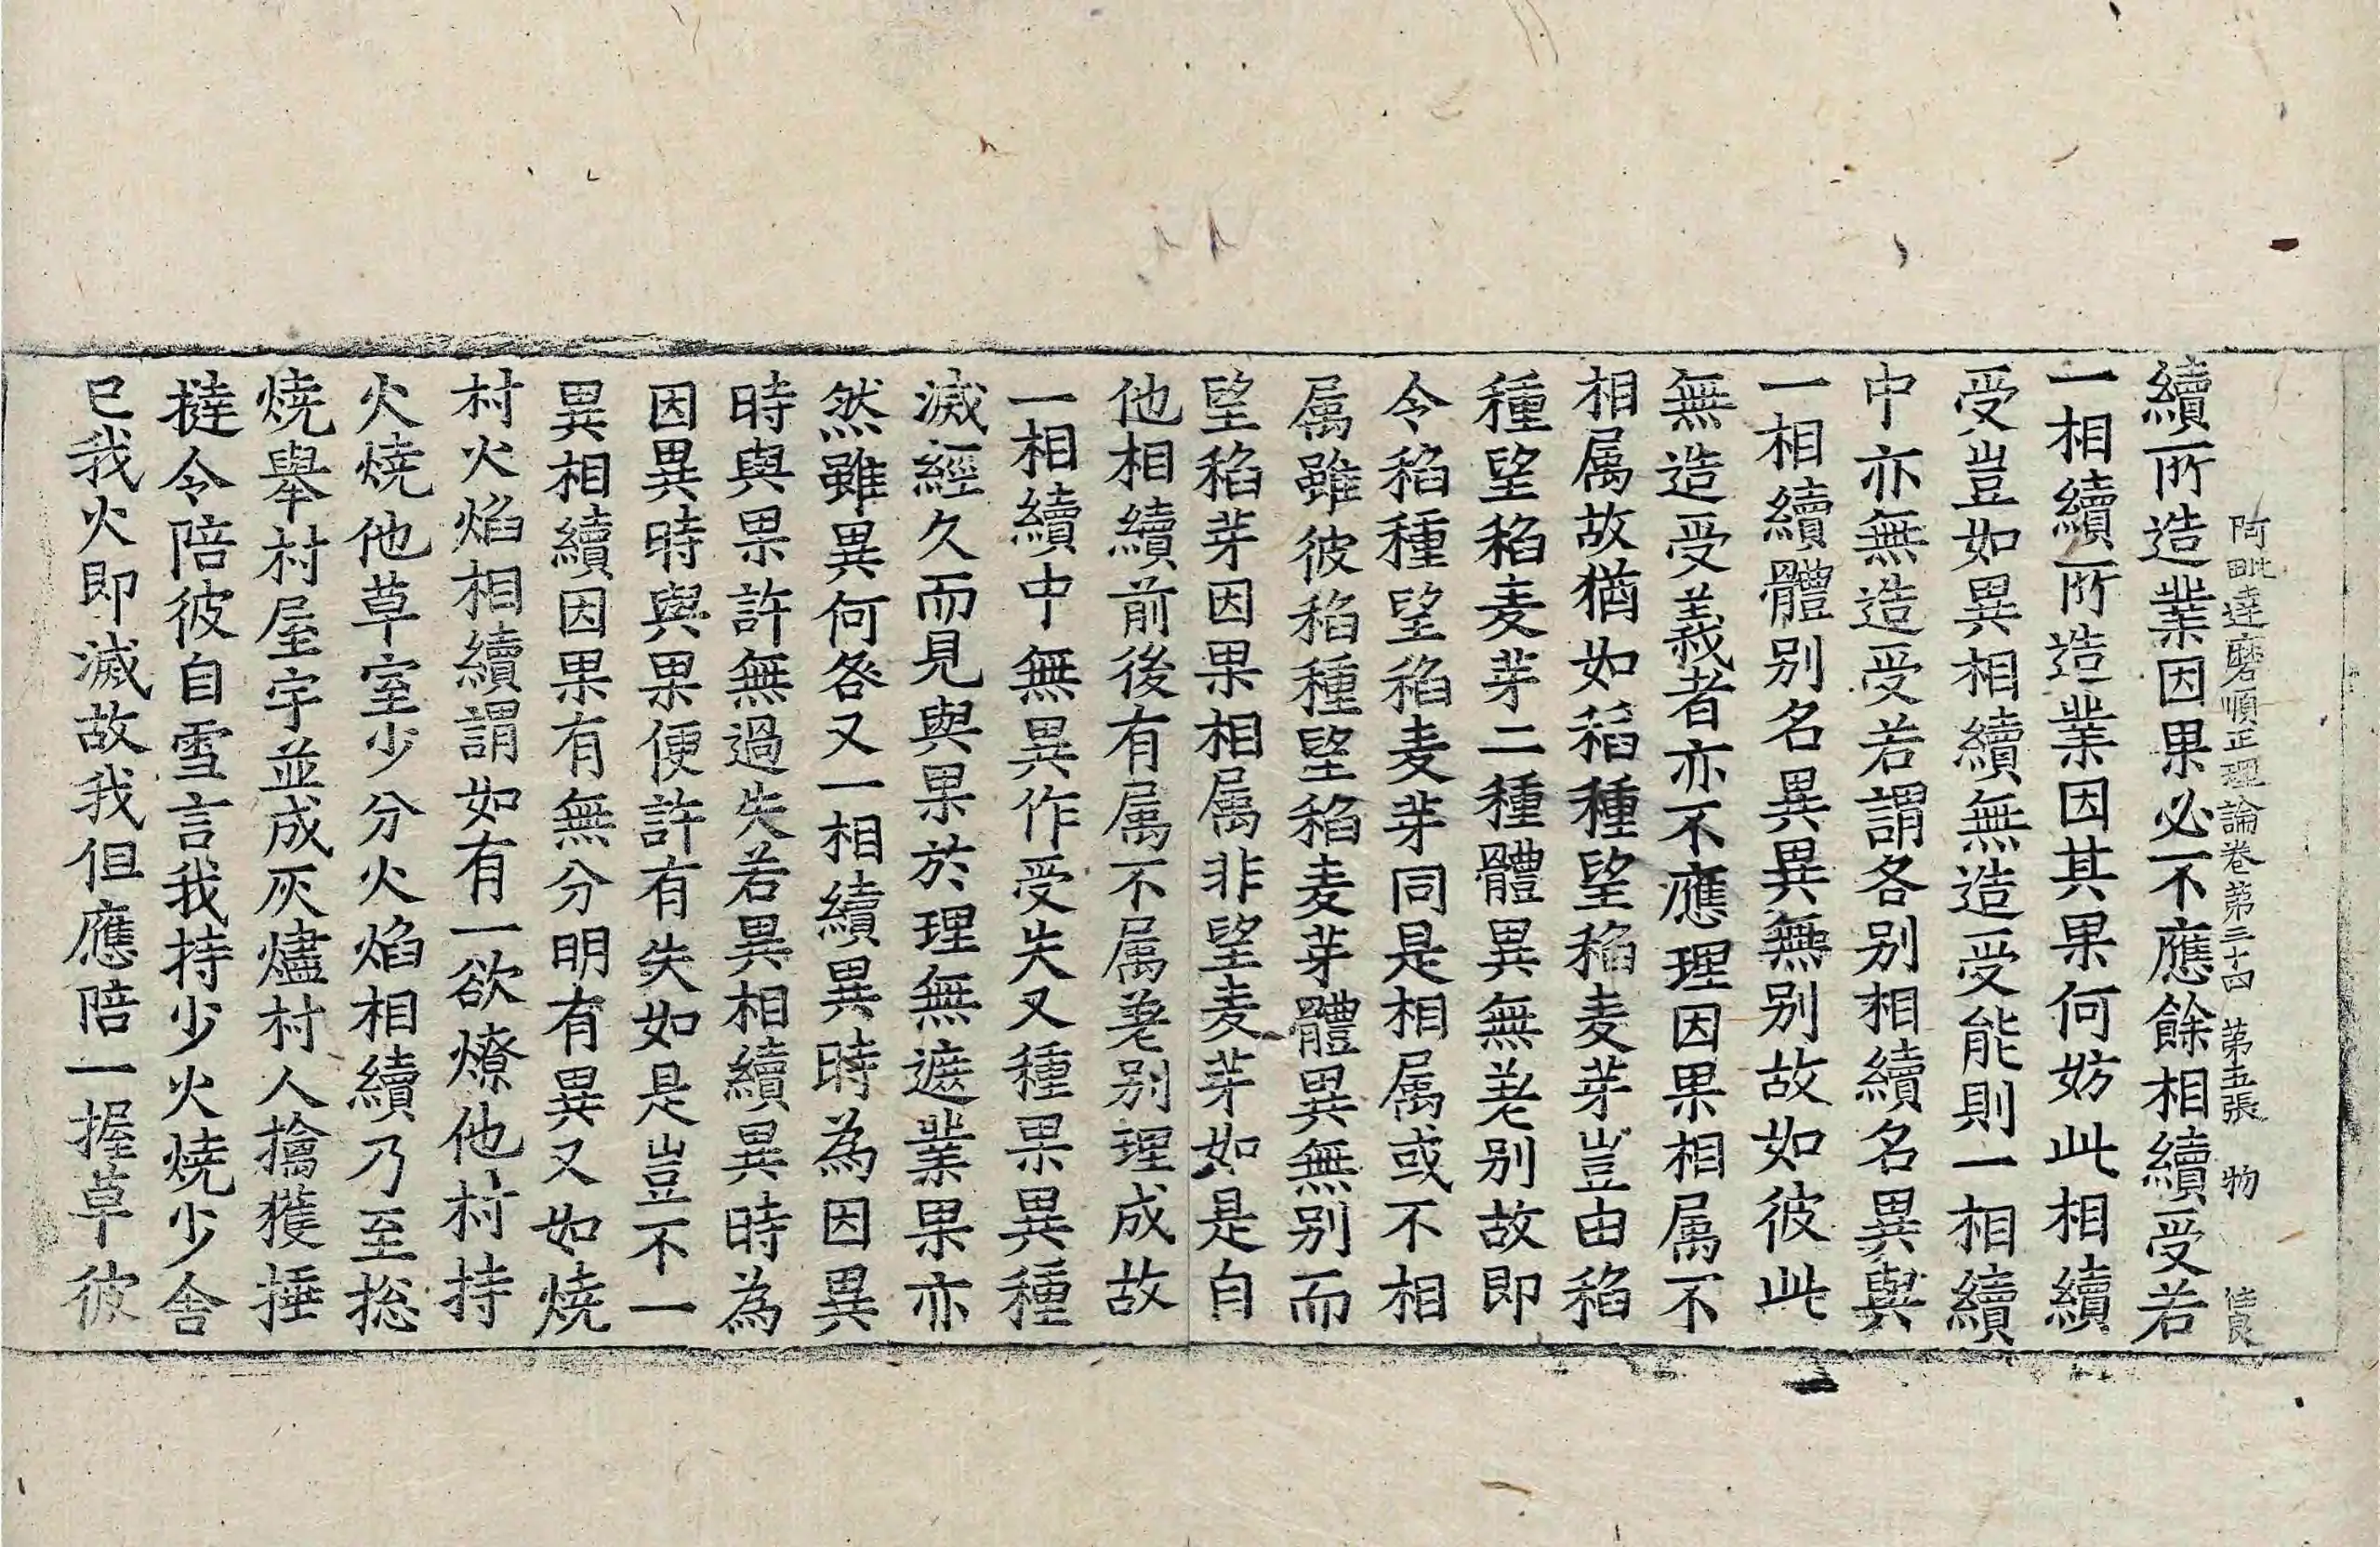 阿毗達磨順正理論卷第三十四 第五張 物 佳良
續所造業因果必不應餘相續受若
一相續所造業因其果何妨此相續
受豈如異相續無造受能則一相續
中亦無造受若謂各別相續名異與
一相續體别名異異無别故如彼此
無造受義者亦不應理因果相属不
相属故猶如稻種望稻麦芽豈由稻
種望稻麦芽二種體異無差别故即
令稻種望稻麦芽同是相属或不相
属雖彼稻種望稻麦芽體異無别而
望稻芽因果相属非望麦芽如是自
他相續前後有属不属差别理成故
一相續中無異作受失又種果異種
滅經久而見與果於理無遮業果亦
然雖異何咎又一相續異時為因異
時與果許無過失若異相續異時為
因異時與果便許有失如是豈不一
異相續因果有無分明有異又如燒
村火焰相續謂如有一欲燎他村持
火燒他草室少分火焰相續乃至揔
燒舉村屋宇並成灰燼村人擒獲捶
撻令陪彼自雪言我持少火燒少舍
已我火即滅故我但應陪一握草彼